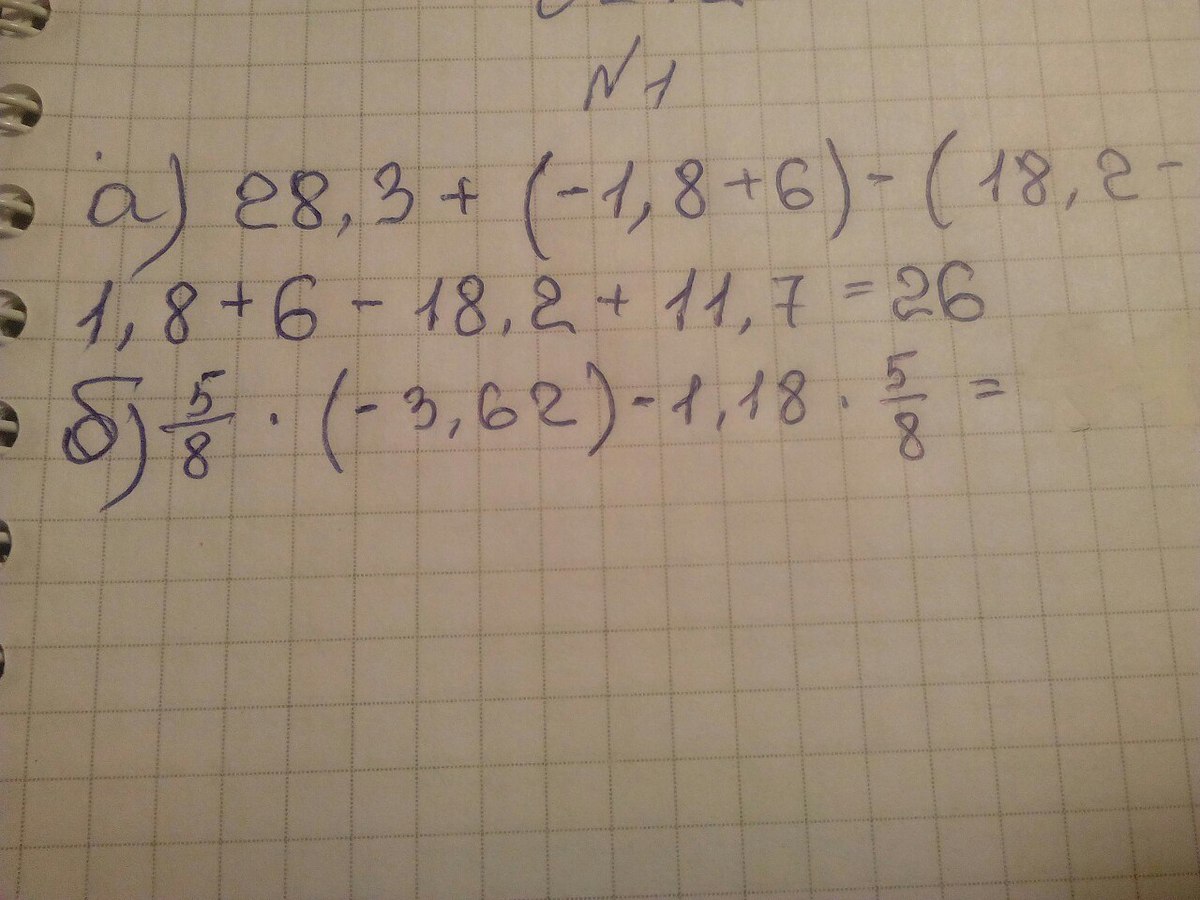 №1
а) 28,3 + (-1,8+6) - (18,2 -
1,8+6 - 18,2 + 11,7 = 26
б) 5/8 · (-3,62) - 1,18 · 5/8 =